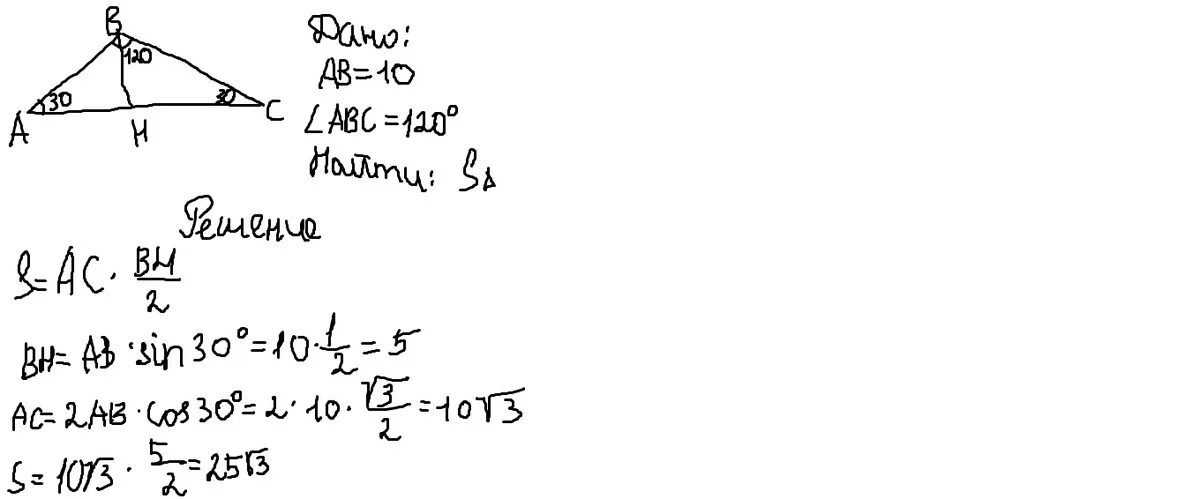 B
120
30
30
A
H
C
Дано:
AB=10
∠ABC=120°
Найти: S△
Решение
S=AC·BH/2
BH=AB·sin30°=10·1/2=5
AC=2AB·cos30°=2·10·√3/2=10√3
S=10√3·5/2=25√3